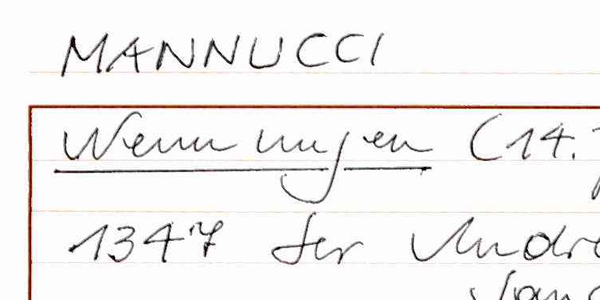 MANNUCCI
Nennungen (14.
1347 Ser Andre